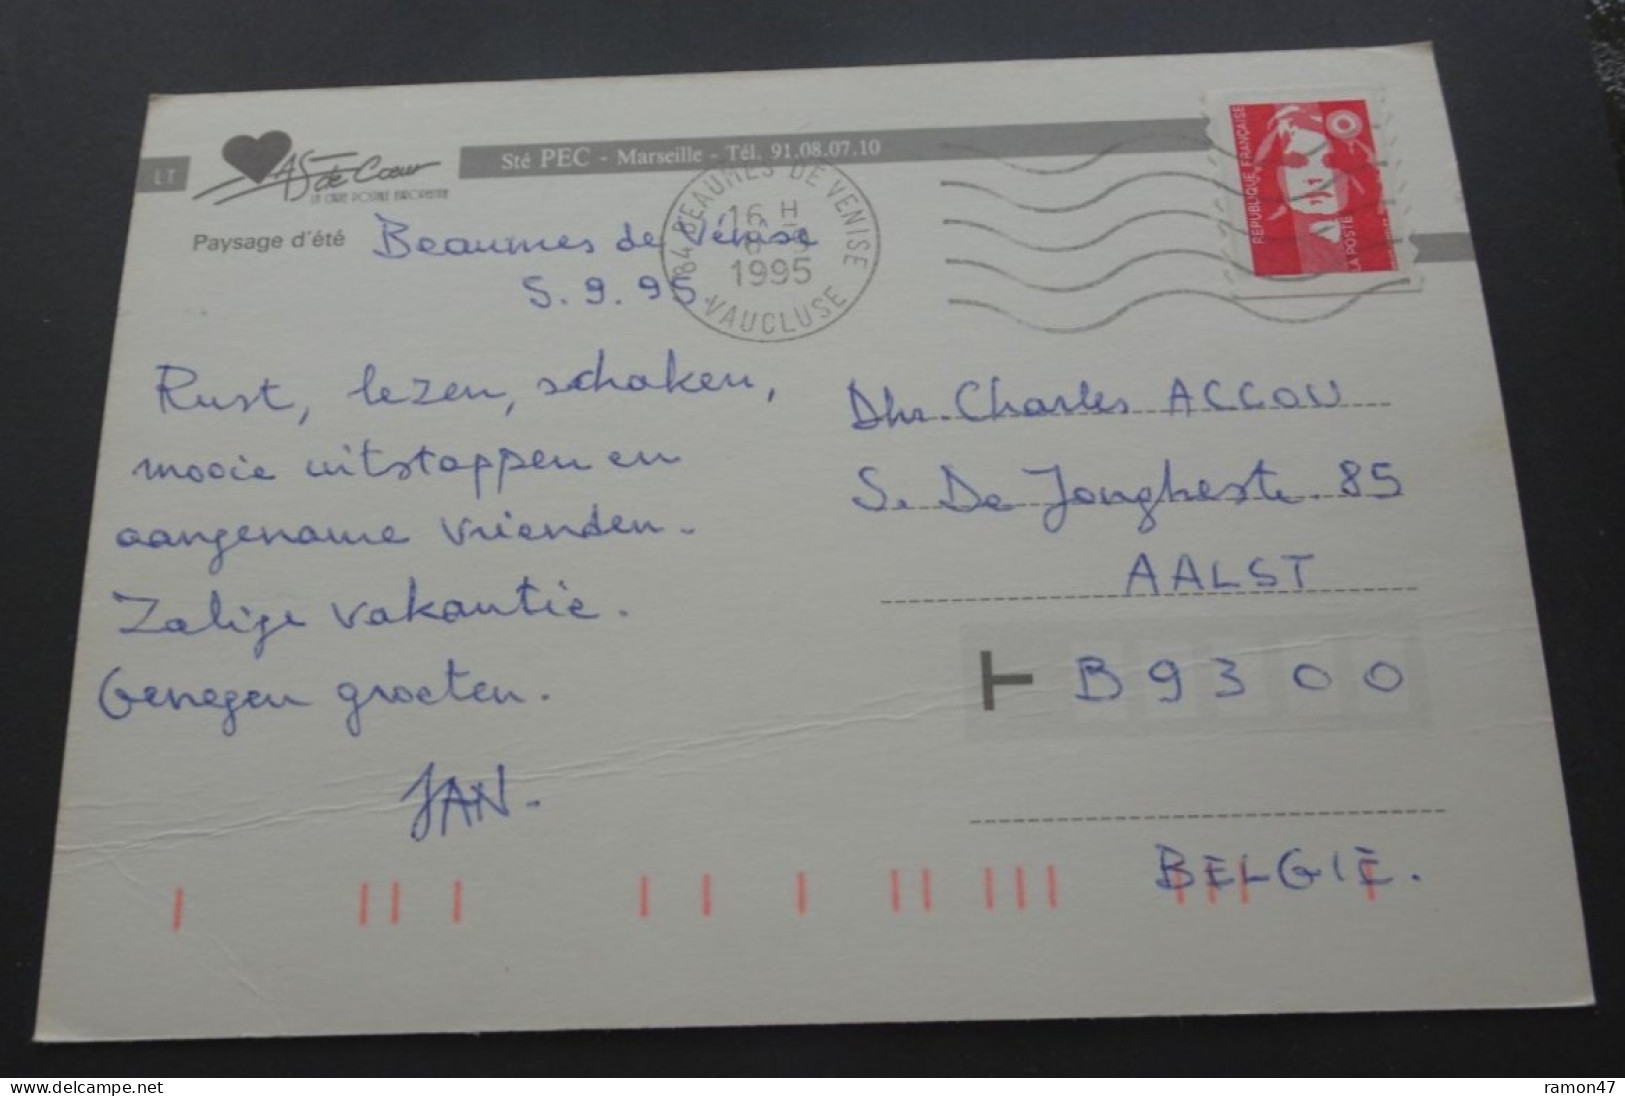 LT
As de Cœur
LA CARTE POSTALE EUROPEENNE
Sté PEC - Marseille - Tél. 91.08.07.10
Paysage d'été
Beaumes de Vénise
5.9.95.
84 BEAUMES DE VENISE
16 H
1995
VAUCLUSE
REPUBLIQUE FRANÇAISE
LA POSTE
Rust, lezen, schaken,
mooie uitstappen en
aangename vrienden.
Zalige vakantie.
Genegen groeten.
JAN.
Dhr. Charles ACCOU
S. De Jonghestr. 85
AALST
T B 9 3 0 0
BELGIË.
www.delcampe.net
ramon47